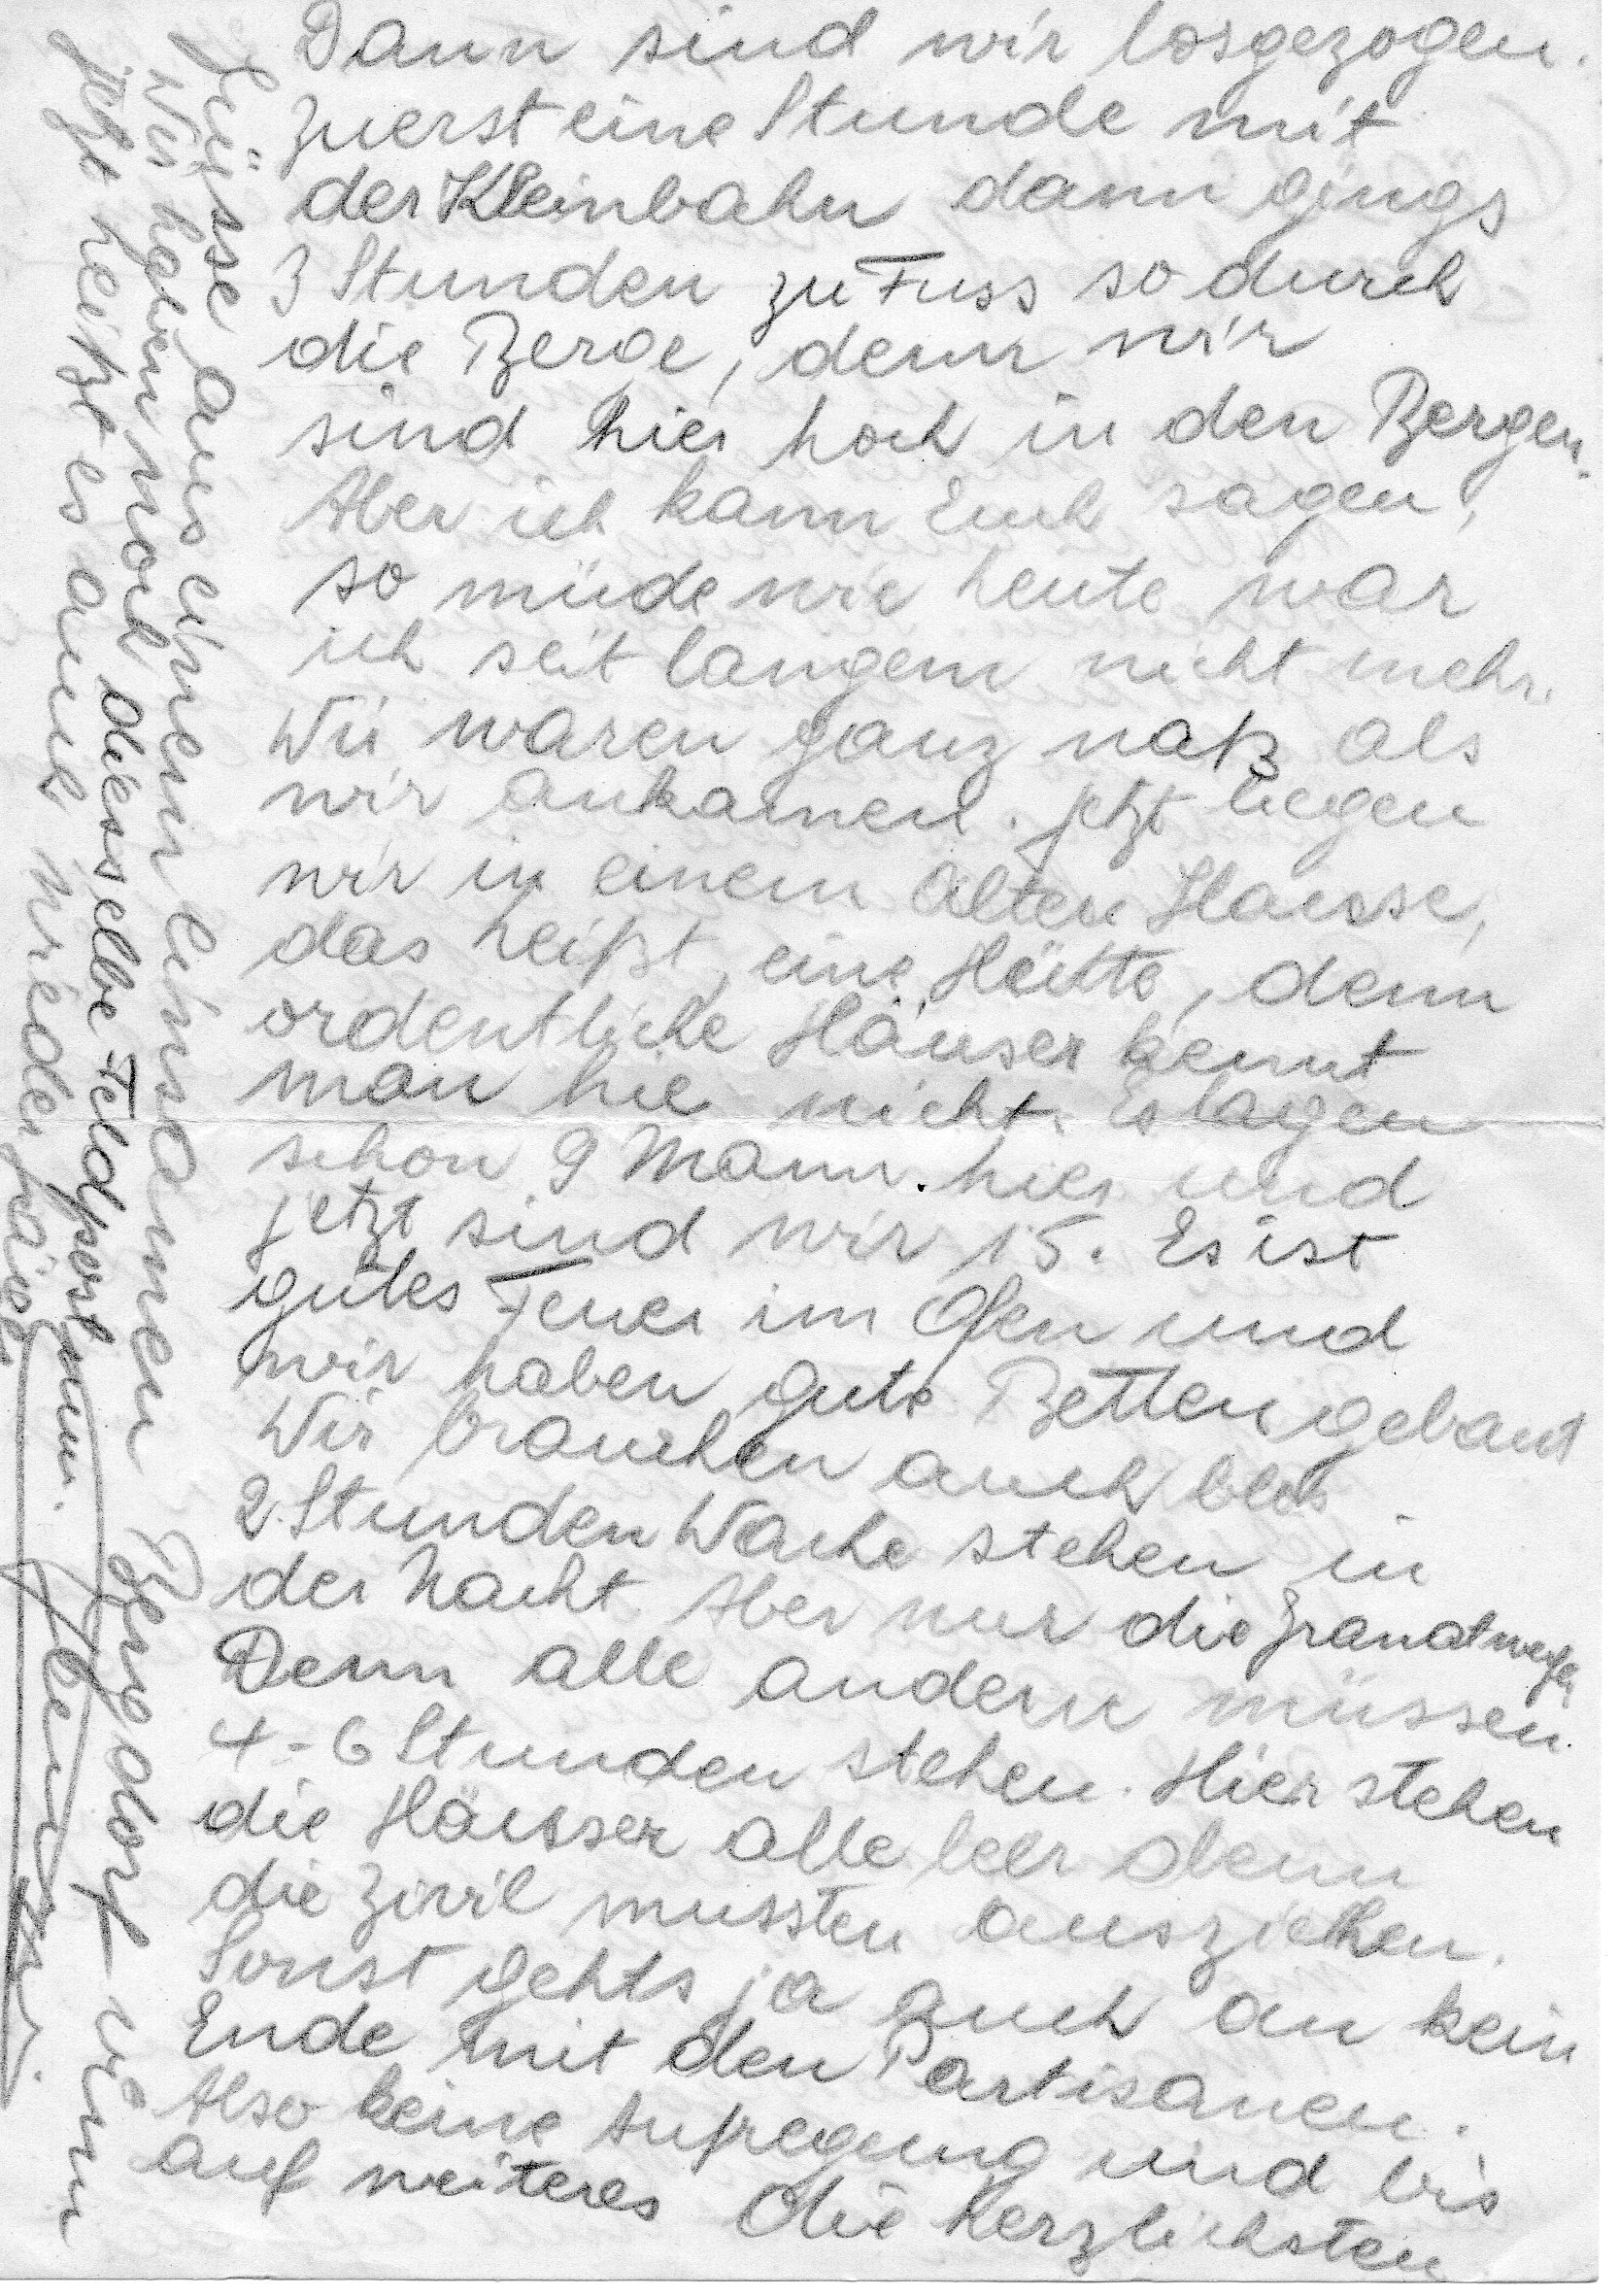 Dann sind wir losgezogen.
Zuerst eine Stunde mit
der Kleinbahn dann gings
3 Stunden zu Fuss so durch
die Berge, denn wir
sind hier hoch in den Bergen.
Aber ich kann Euch sagen,
so müde wie heute war
ich seit langem nicht mehr.
Wir waren ganz naß als
wir ankamen. Jetzt liegen
wir in einem alten Hausse,
das heißt, eine Hütte, denn
ordentliche Häuser kennt
man hie nicht. Es lagen
schon 9 Mann hier und
jetzt sind wir 15. Es ist
gutes Feuer im Ofen und
wir haben gute Betten gebaut
Wir brauchen auch blos
2 Stunden Wache stehen in
der Nacht. Aber nur die Granatwerfer
Denn alle andern müssen
4-6 Stunden stehen. Hier stehen
die Häusser alle leer denn
die Zivil mussten ausziehen.
Sonst gehts ja auch an kein
Ende mit den Partisanen.
Also keine Aufregung und bis
auf weiteres die herzlichsten
Grüsse aus einem einsamen Bergdorf von
Wir haben noch dieselbe Feldpostnum.
Jetzt heitzt es auch wieder